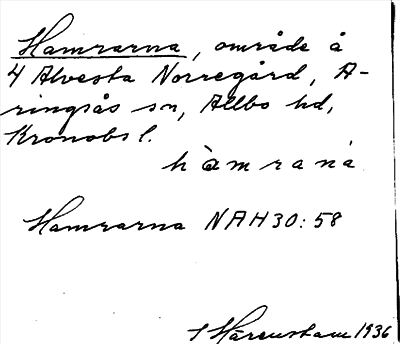 Hamrarna, område å
4 Alvesta Norregård, A-
ringsås sn, Allbo hd,
Kronobs l.
hàmraná
Hamrarna NAH30:58
Hårenstam 1936